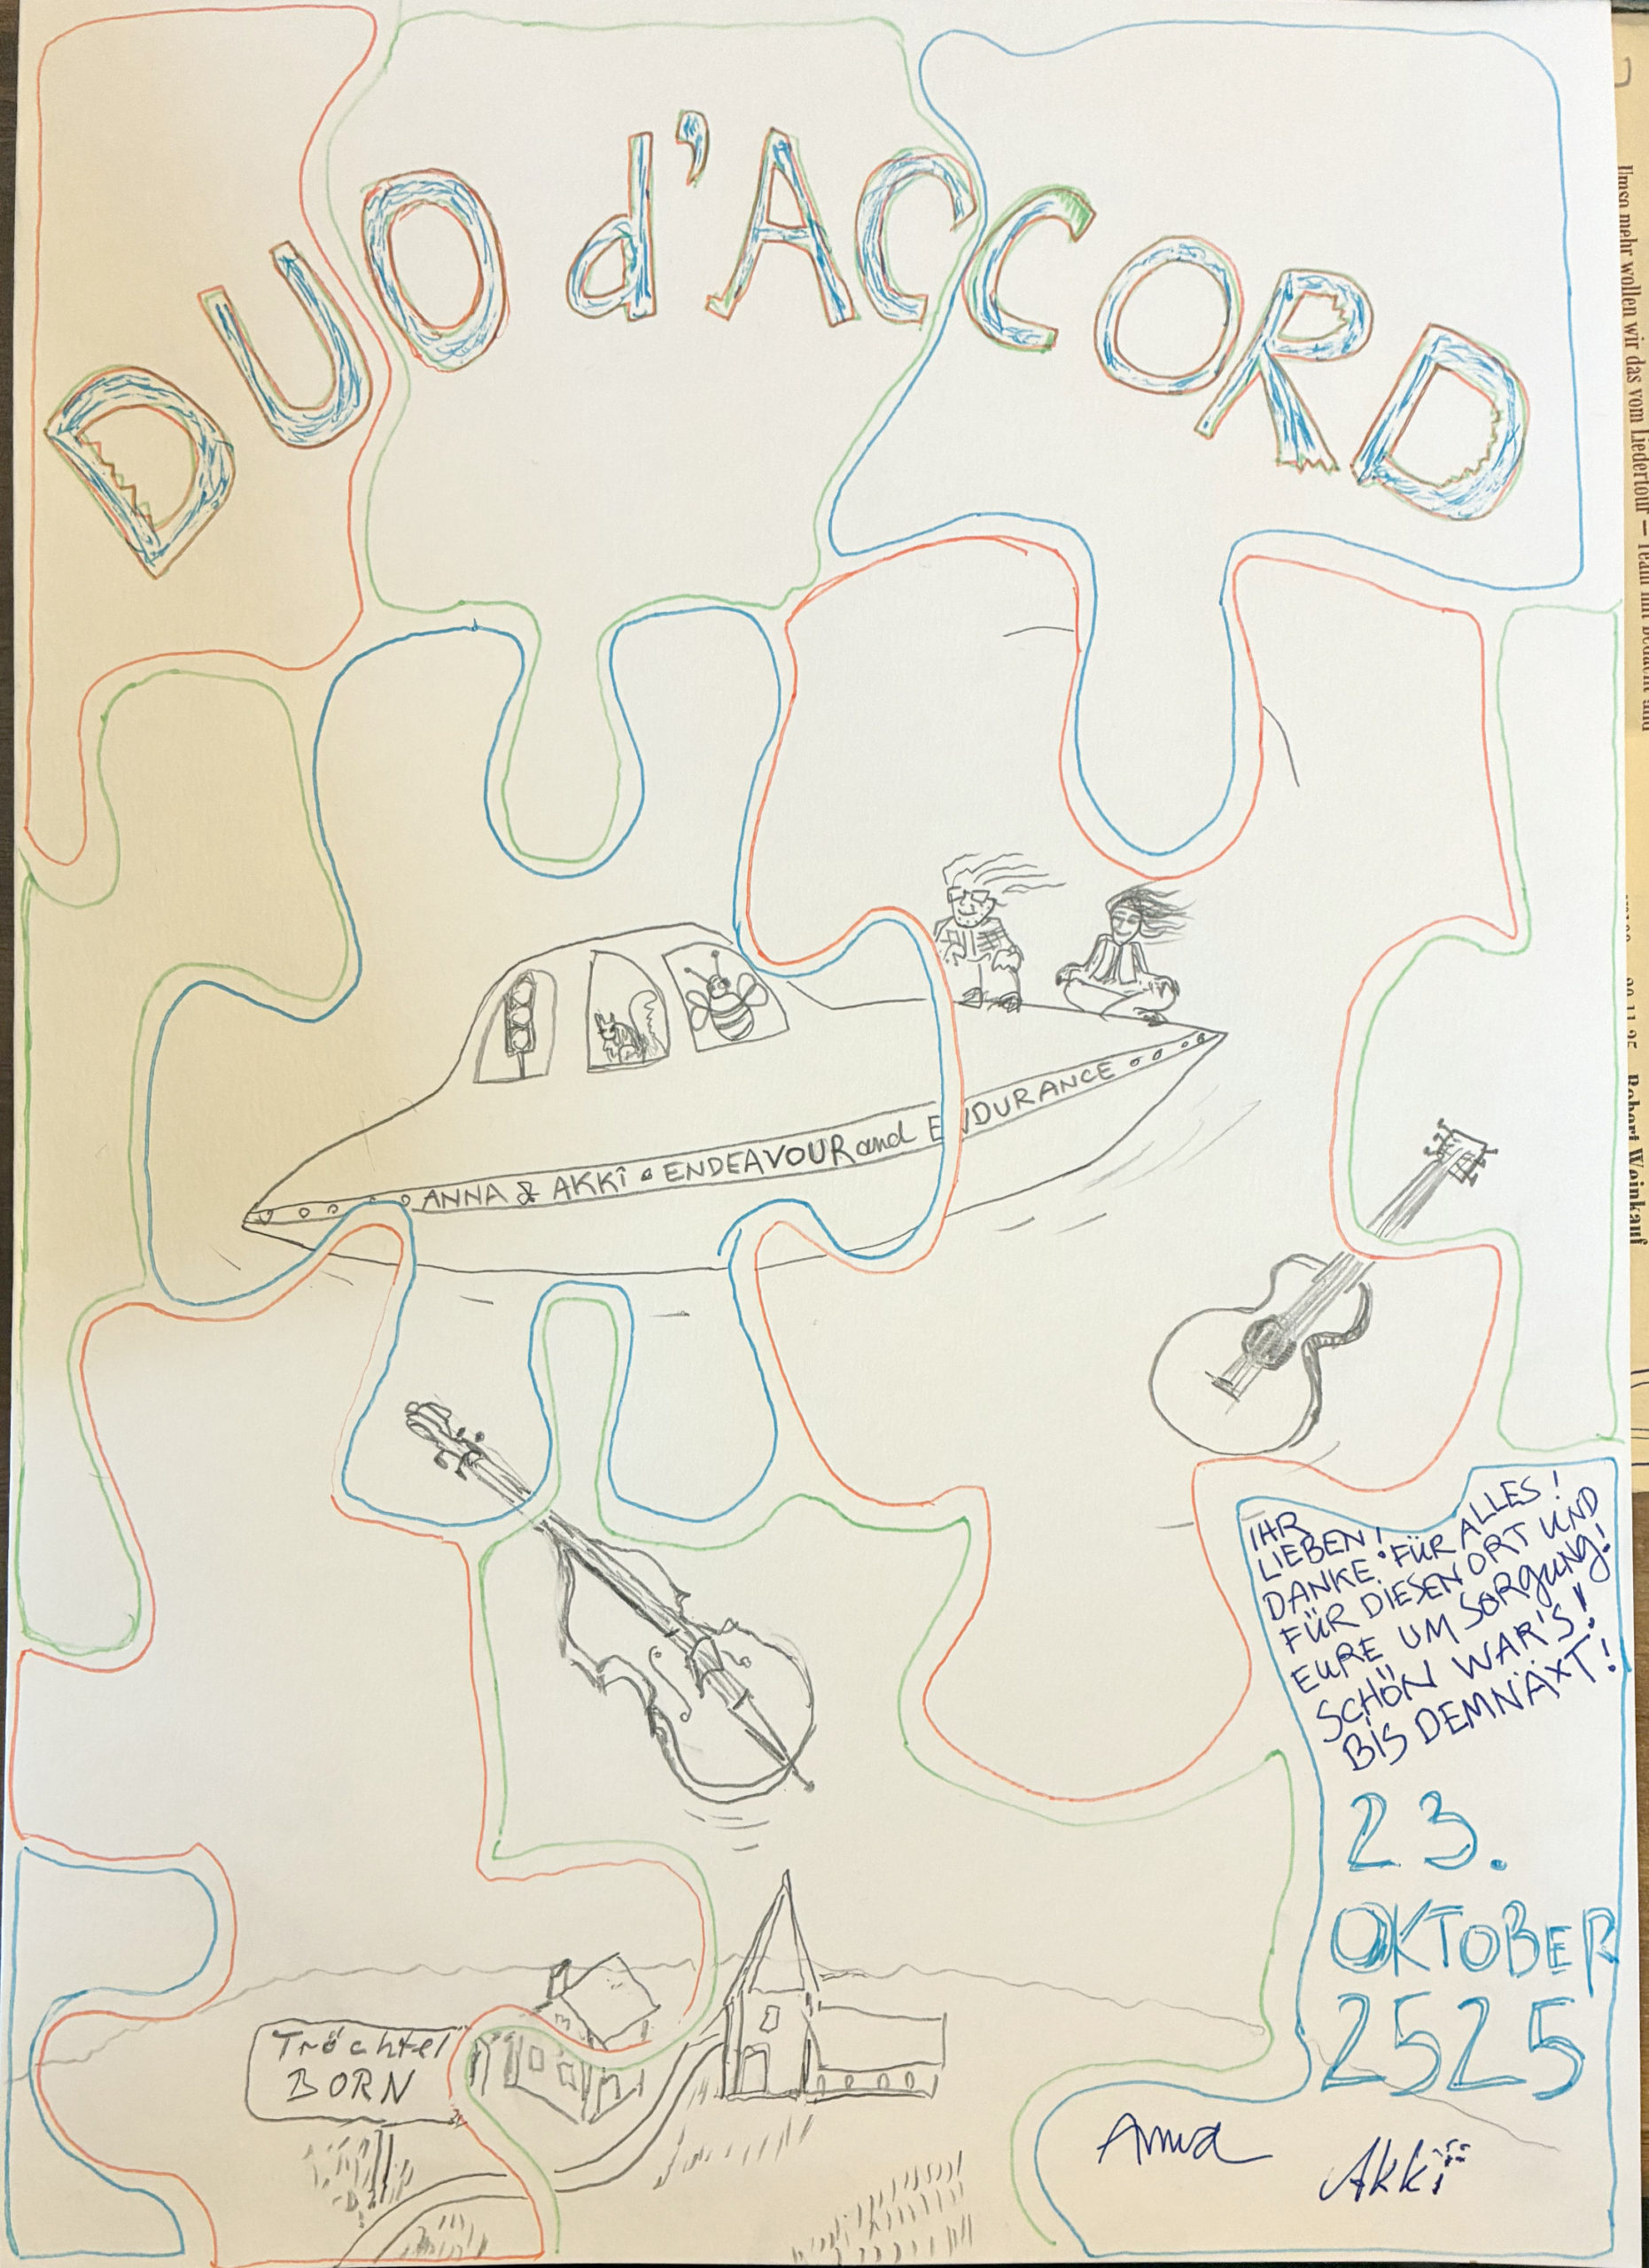 DUO d'ACCORD
ANNA & AKKI • ENDEAVOUR and ENDURANCE
IHR
LIEBEN!
DANKE FÜR ALLES!
FÜR DIESEN ORT UND
EURE UMSORGUNG!
SCHÖN WAR'S!
BIS DEMNÄXT!
23.
OKTOBER
2525
Tröchtel
BORN
Anna
Akki
Umso mehr wollen wir das vom Liedertour – Team mit Bedacht und
Robert Weinkauf